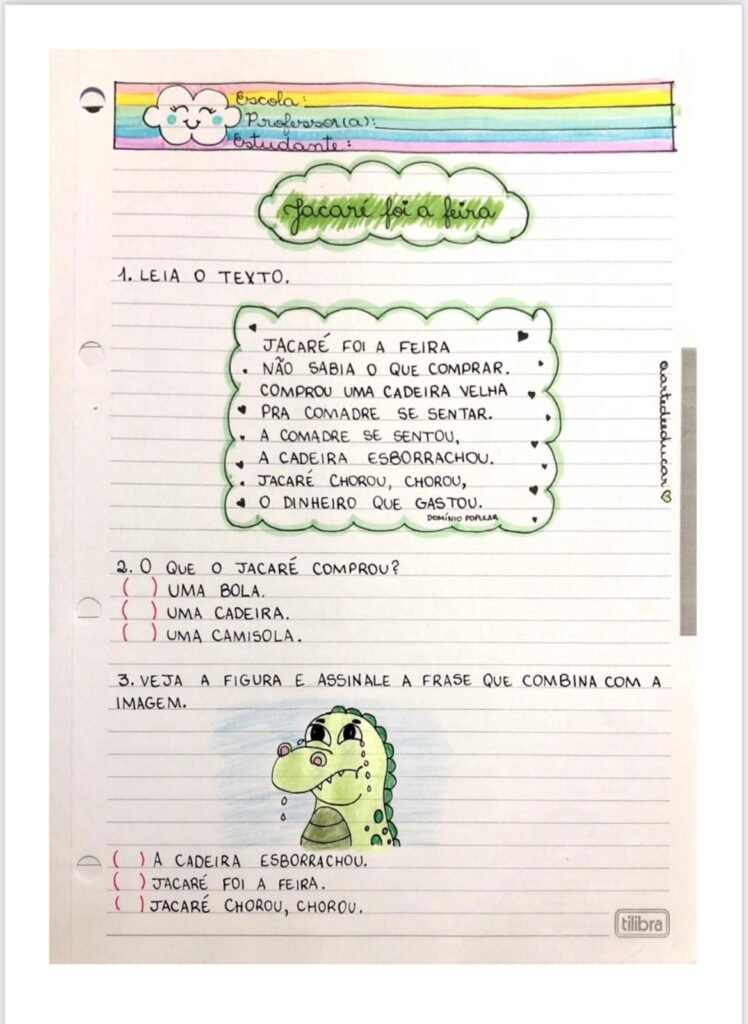 Escola:
Professor(a):
Estudante:
Jacaré foi a feira
1. LEIA O TEXTO.
JACARÉ FOI A FEIRA
NÃO SABIA O QUE COMPRAR.
COMPROU UMA CADEIRA VELHA
PRA COMADRE SE SENTAR.
A COMADRE SE SENTOU,
A CADEIRA ESBORRACHOU.
JACARÉ CHOROU, CHOROU,
O DINHEIRO QUE GASTOU.
DOMÍNIO POPULAR
@artedeeducar
2. O QUE O JACARÉ COMPROU?
( ) UMA BOLA.
( ) UMA CADEIRA.
( ) UMA CAMISOLA.
3. VEJA A FIGURA E ASSINALE A FRASE QUE COMBINA COM A
IMAGEM.
( ) A CADEIRA ESBORRACHOU.
( ) JACARÉ FOI A FEIRA.
( ) JACARÉ CHOROU, CHOROU.
tilibra